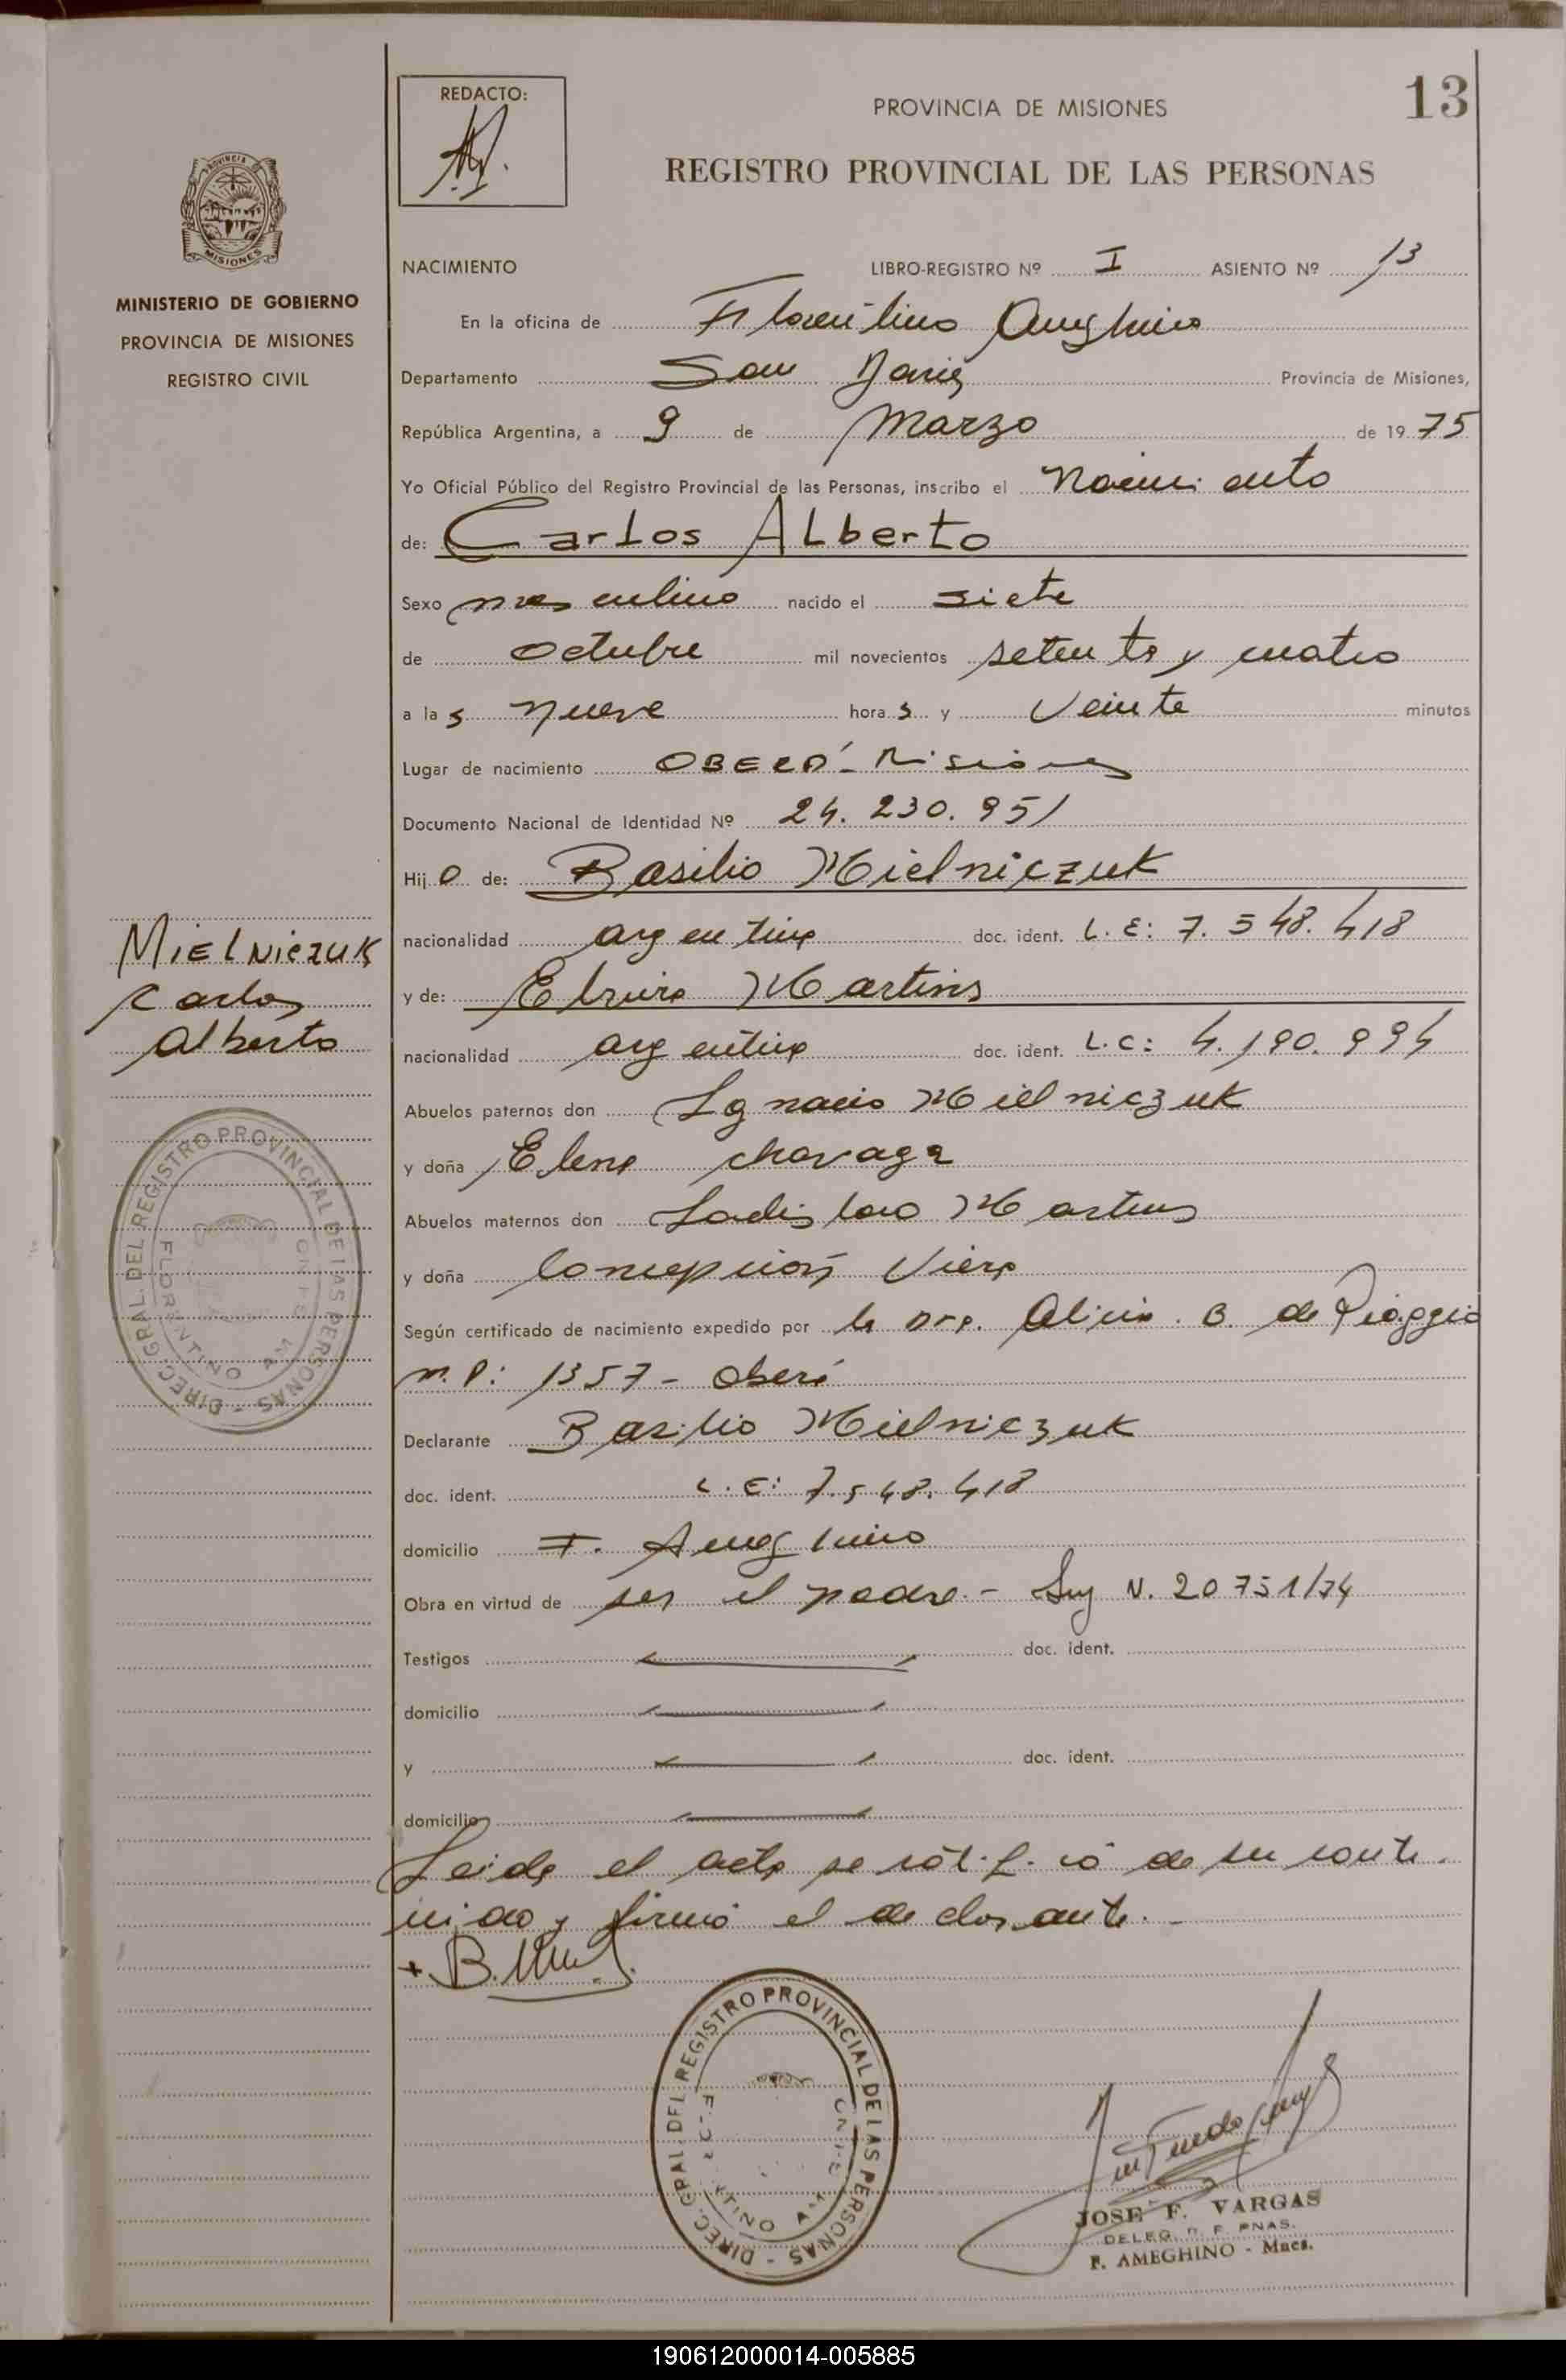 13
REDACTO:
PROVINCIA DE MISIONES
REGISTRO PROVINCIAL DE LAS PERSONAS
PROVINCIA
MISIONES
MINISTERIO DE GOBIERNO
PROVINCIA DE MISIONES
REGISTRO CIVIL
NACIMIENTO LIBRO-REGISTRO Nº I ASIENTO Nº 13
En la oficina de Florentino Ameghino
Departamento San Javier Provincia de Misiones,
República Argentina, a 9 de Marzo de 1975
Yo Oficial Público del Registro Provincial de las Personas, inscribo el Nacimiento
de: Carlos Alberto
Sexo masculino nacido el siete
de octubre mil novecientos setenta y cuatro
a las nueve horas y veinte minutos
Lugar de nacimiento OBERÁ - Misiones
Documento Nacional de Identidad Nº 24.230.951
Hijo de: Basilio Mielniczuk
nacionalidad argentina doc. ident. L.E: 7.548.418
y de: Elvira Martins
nacionalidad argentina doc. ident. L.C: 4.190.994
Abuelos paternos don Ignacio Mielniczuk
y doña Elena
Abuelos maternos don Ladislao Martins
y doña Concepción Viera
Según certificado de nacimiento expedido por la Dra. Alicia B. de Piaggio
M.P: 1357 - Oberá
Declarante Basilio Mielniczuk
doc. ident. L.E: 7.548.418
domicilio F. Ameghino
Obra en virtud de ser el padre. - Ley N. 20751/74
Testigos doc. ident.
domicilio
y doc. ident.
domicilio
Leida el acta se ratificó de su conte-
nido y firmó el declarante. -
MIELNICZUK
Carlos
Alberto
DIREC. GRAL. DEL REGISTRO PROVINCIAL DE LAS PERSONAS -
FLORENTINO AM
DIREC. GRAL. DEL REGISTRO PROVINCIAL DE LAS PERSONAS -
JOSE F. VARGAS
DELEG. R. P. PNAS.
F. AMEGHINO - Mnes.
190612000014-005885